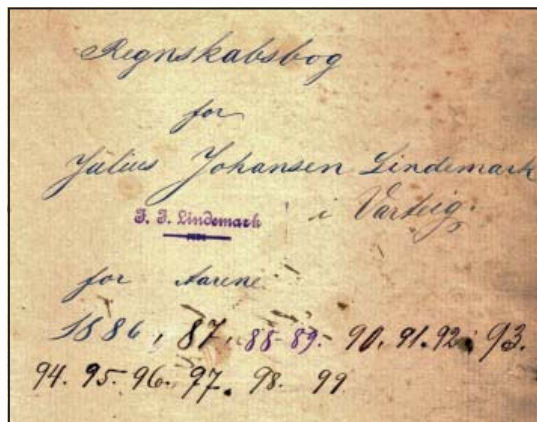 Regnskabsbog
for
Julius Johansen Lindemark
J. J. Lindemark
i Varteig.
for Aarene
1886, 87, 88-89. 90. 91. 92. 93.
94. 95- 96. 97. 98. 99